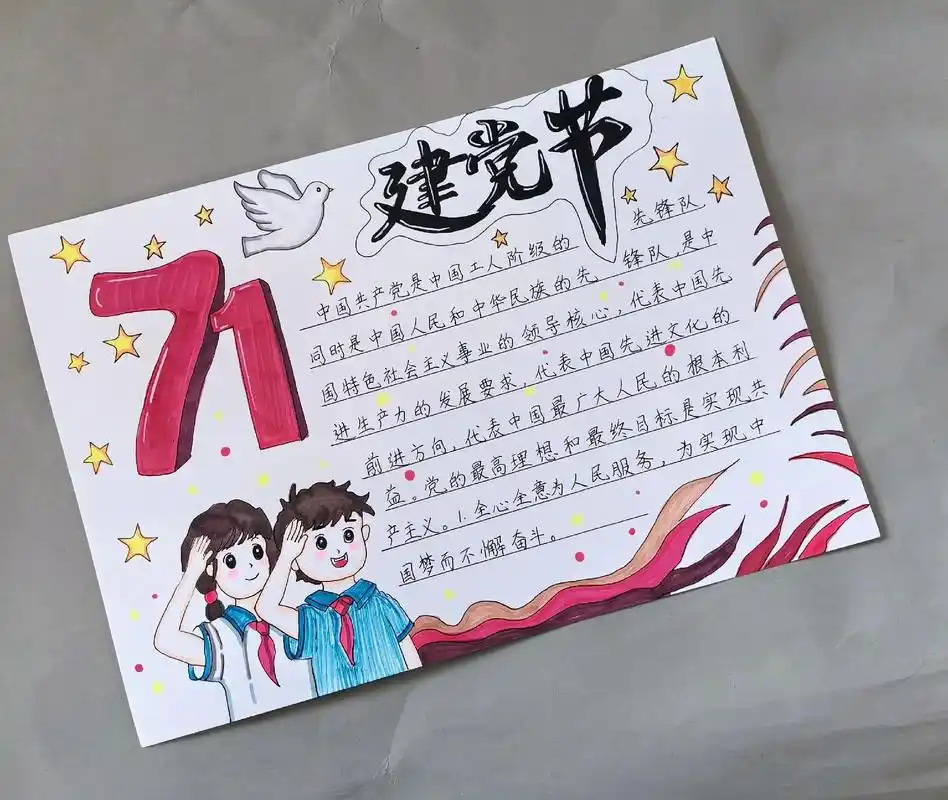 建党节
71
中国共产党是中国工人阶级的 先锋队,
同时是中国人民和中华民族的先锋队.是中
国特色社会主义事业的领导核心,代表中国先
进生产力的发展要求,代表中国先进文化的
前进方向,代表中国最广大人民的根本利
益。党的最高理想和最终目标是实现共
产主义。1.全心全意为人民服务,为实现中
国梦而不懈奋斗。